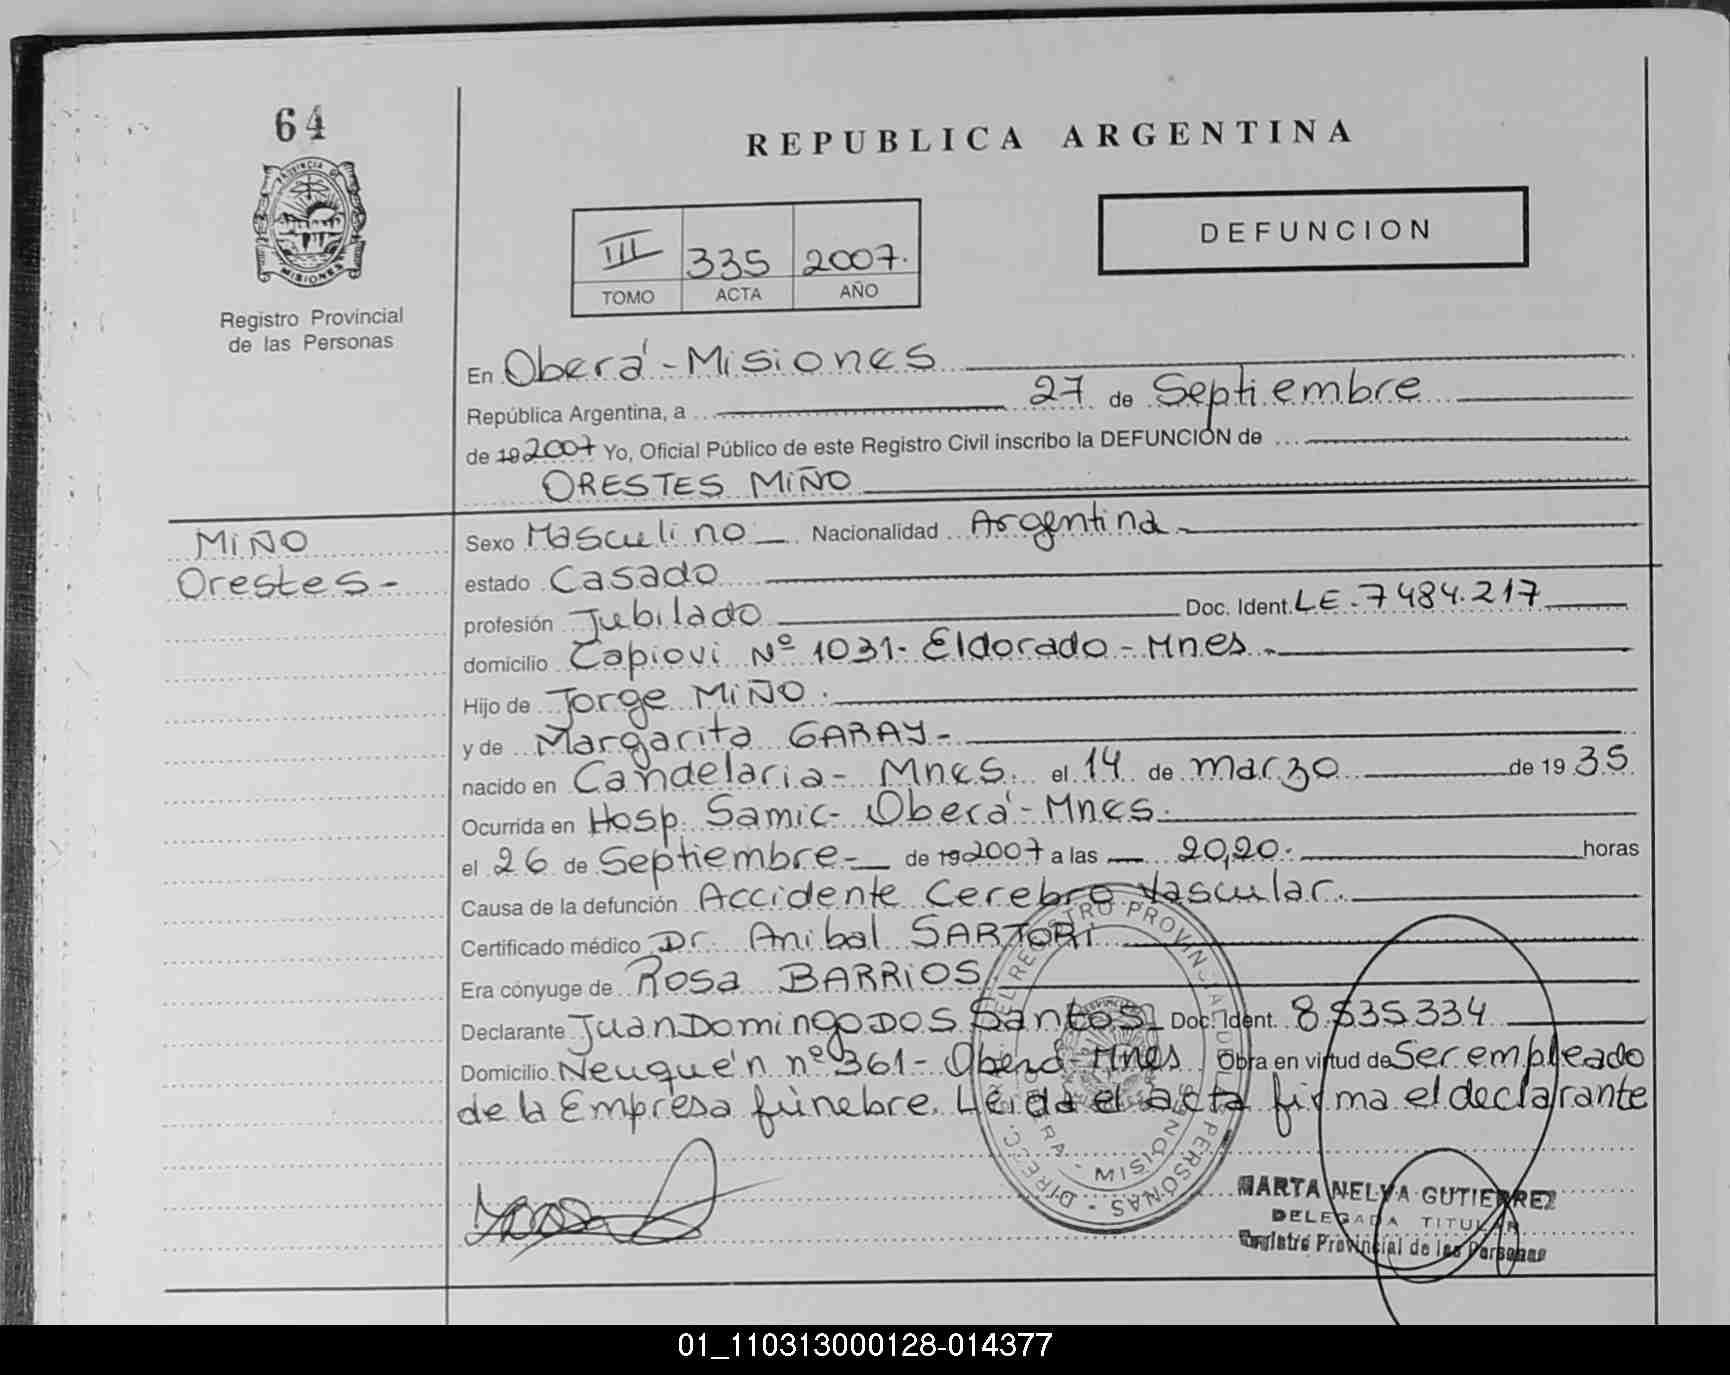 64
PROVINCIA DE
MISIONES
Registro Provincial
de las Personas
REPUBLICA ARGENTINA
III 335 2007.
TOMO ACTA AÑO
DEFUNCION
En Oberá - Misiones
República Argentina, a 27 de Septiembre
de 19 2007 Yo, Oficial Público de este Registro Civil inscribo la DEFUNCIÓN de
ORESTES MIÑO
MIÑO
Orestes -
Sexo Masculino Nacionalidad Argentina
estado Casado
profesión Jubilado Doc. Ident. LE. 7484.217
domicilio Capiovi Nº 1031 - Eldorado - Mnes.
Hijo de Jorge MIÑO.
y de Margarita GARAY -
nacido en Candelaria - Mnes. el 14 de marzo de 19 35
Ocurrida en Hosp. Samic - Oberá - Mnes.
el 26 de Septiembre - de 19 2007 a las 20,20. horas
Causa de la defunción Accidente Cerebro Vascular.
Certificado médico Dr. Anibal SARTORI
Era cónyuge de Rosa BARRIOS
Declarante Juan Domingo DOS Santos Doc. Ident. 8.535.334
Domicilio Neuquén nº 361 - Oberá - Mnes Obra en virtud de Ser empleado
de la Empresa fúnebre. Leída el acta firma el declarante
MARTA NELVA GUTIERREZ
DELEGADA TITULAR
Registro Provincial de las Personas
01_110313000128-014377